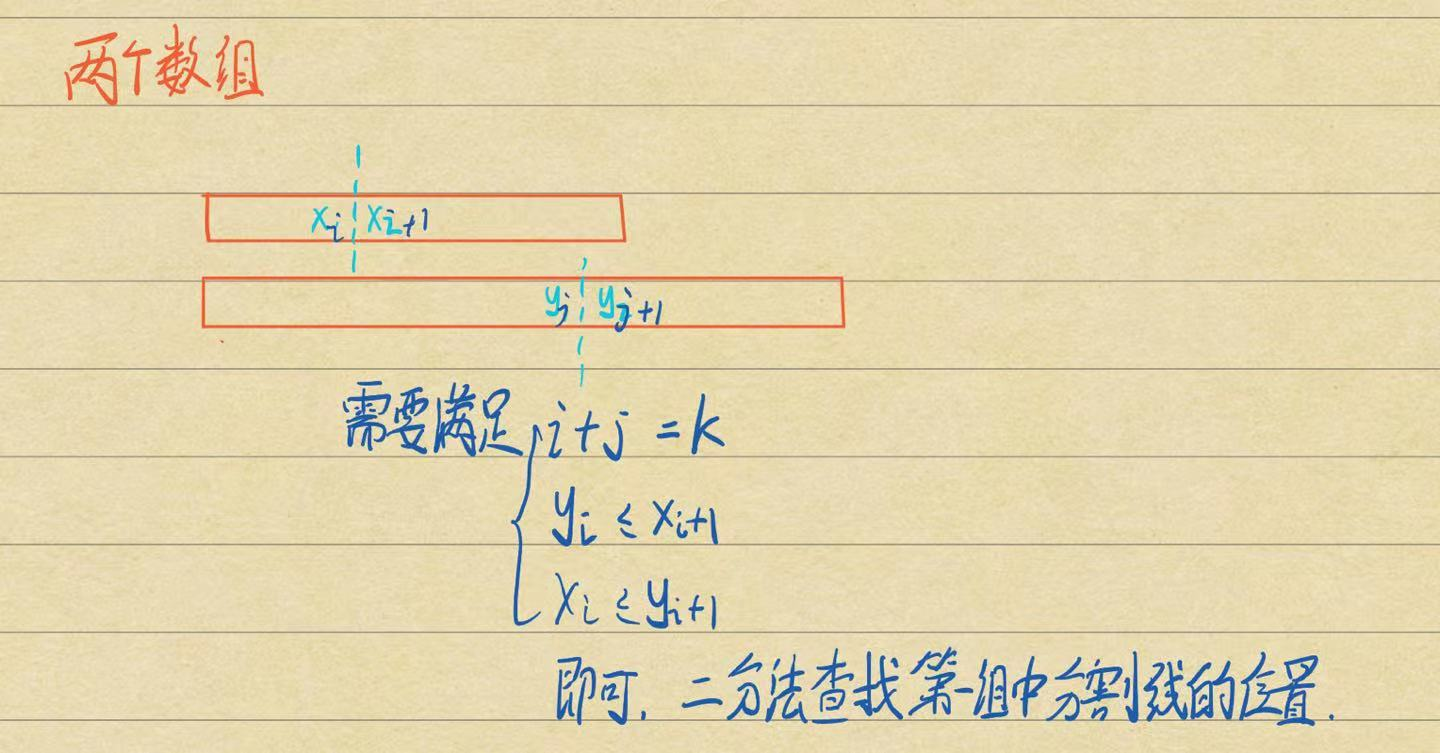 两个数组
xi xi+1
yj yj+1
需要满足 i+j=k
yi≤xi+1
xi≤yi+1
即可.二分法查找第一组中分割线的位置.